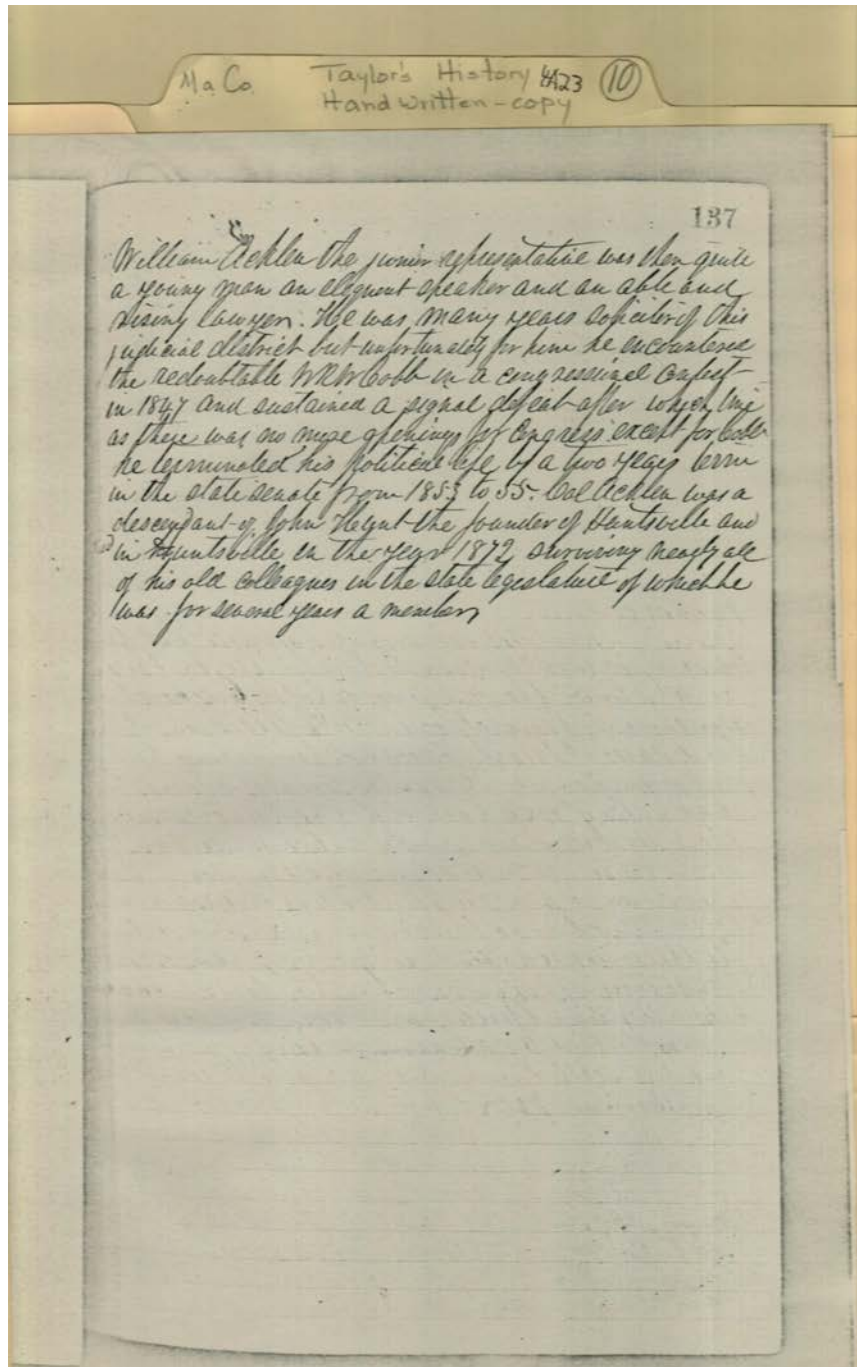 Ma Co. Taylor's History 4A23 10
Hand written - copy
137
William Acklen the junior representative was then quite
a young man an eloquent speaker and an able and
rising lawyer. He was many years soliciter of this
judicial district but unfortunately for him he encountered
the redoubtable WRWCobb in a congressional contest
in 1847 and sustained a signal defeat after which time
as there was no more openings for Congress except for Cobb
he terminated his political life by a two years term
in the state senate from 1853 to 55. Col Acklen was a
descendant of John Hunt the founder of Huntsville and
in Huntsville in the year 1872 surviving nearly all
of his old colleagues in the state legislature of which he
was for several years a member